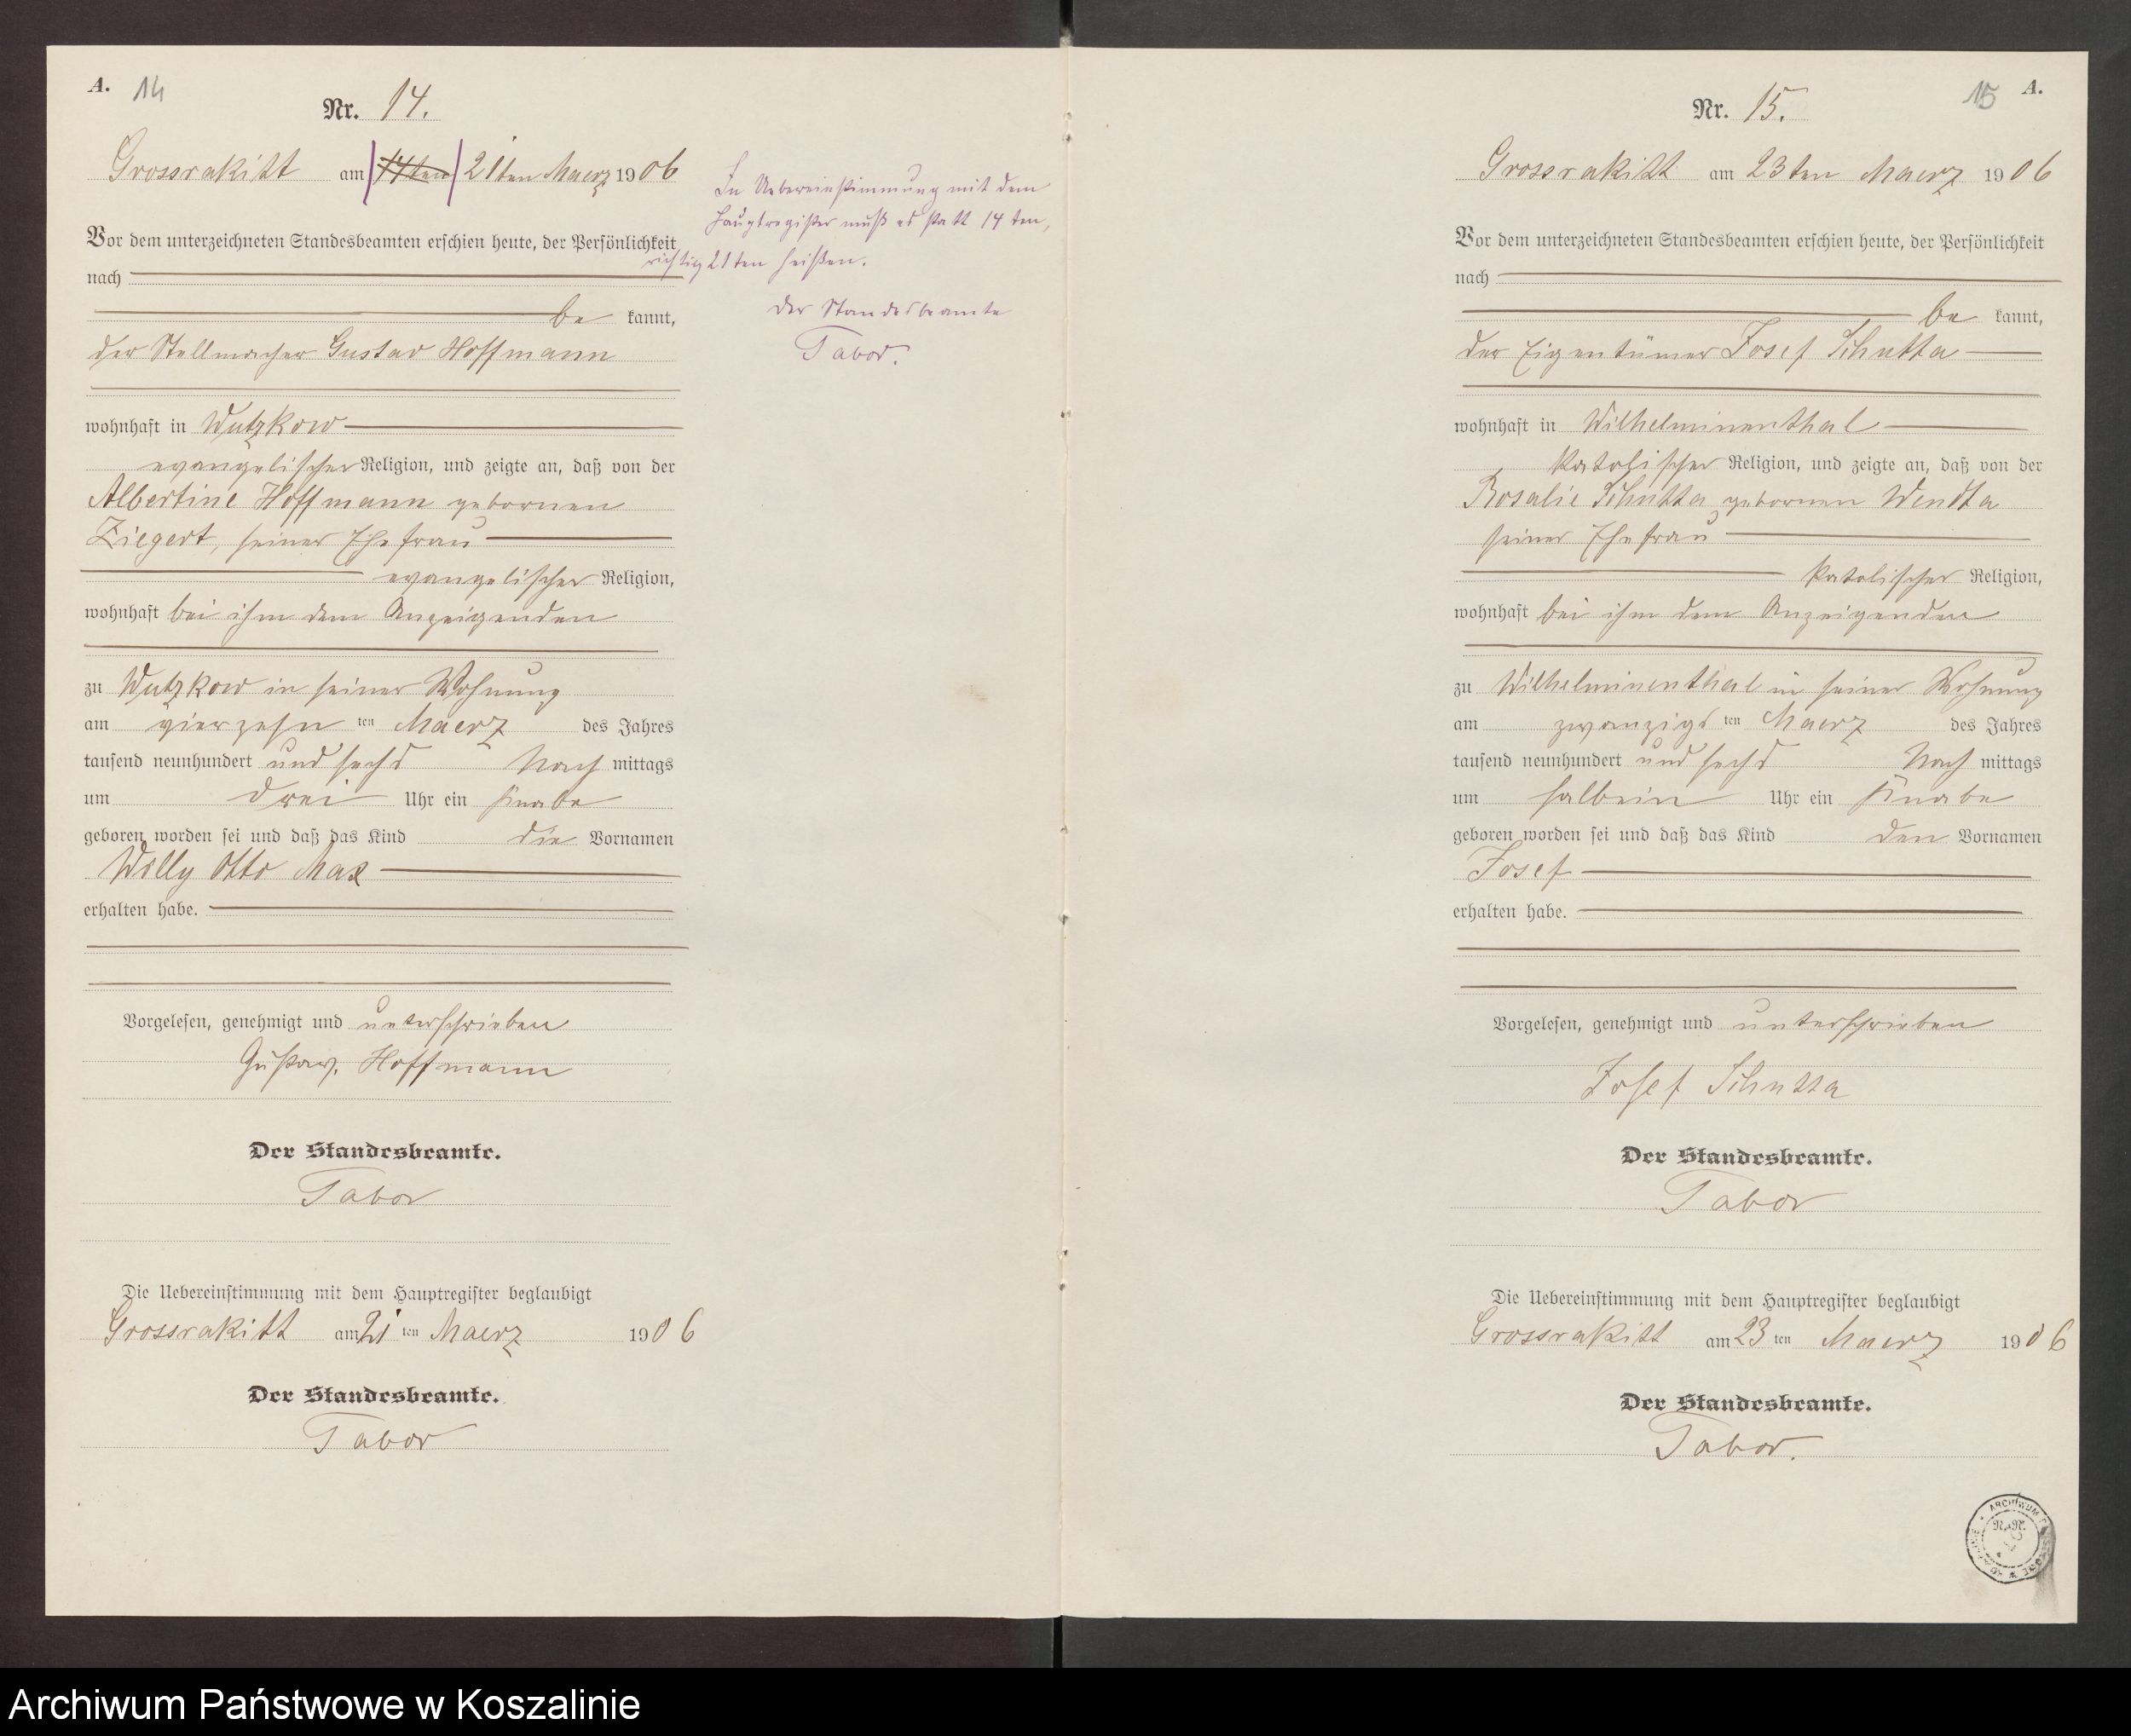 A. 14
Nr. 14.
Grossrakitt am 14ten 21ten Maerz 1906
Vor dem unterzeichneten Standesbeamten erschien heute, der Persönlichkeit
nach
be kannt,
der Stellmacher Gustav Hoffmann
wohnhaft in Wutzkow
evangelischer Religion, und zeigte an, daß von der
Albertine Hoffmann gebornen
Ziegert, seiner Ehefrau
evangelischer Religion,
wohnhaft bei ihm dem Anzeigenden
zu Wutzkow in seiner Wohnung
am vierzehn ten Maerz des Jahres
tausend neunhundert und sechs Nach mittags
um drei Uhr ein Knabe
geboren worden sei und daß das Kind die Vornamen
Willy Otto Max
erhalten habe.
Vorgelesen, genehmigt und unterschrieben
Gustav. Hoffmann
Der Standesbeamte.
Tabor
Die Uebereinstimmung mit dem Hauptregister beglaubigt
Grossrakitt am 21 ten Maerz 1906
Der Standesbeamte.
Tabor
In Uebereinstimmung mit dem
Hauptregister muß es statt 14 ten,
richtig 21ten heißen.
Der Standesbeamte
Tabor.
15 A.
Nr. 15.
Grossrakitt am 23ten Maerz 1906
Vor dem unterzeichneten Standesbeamten erschien heute, der Persönlichkeit
nach
be kannt,
der Eigentümer Josef Schutta
wohnhaft in Wilhelminenthal
katolischer Religion, und zeigte an, daß von der
Rosalie Schutta gebornen Wendta
seiner Ehefrau
katolischer Religion,
wohnhaft bei ihm dem Anzeigenden
zu Wilhelminenthal in seiner Wohnung
am zwanzigs ten Maerz des Jahres
tausend neunhundert und sechs Nach mittags
um halbein Uhr ein Knabe
geboren worden sei und daß das Kind den Vornamen
Josef
erhalten habe.
Vorgelesen, genehmigt und unterschrieben
Josef Schutta
Der Standesbeamte.
Tabor
Die Uebereinstimmung mit dem Hauptregister beglaubigt
Grossrakitt am 23 ten Maerz 1906
Der Standesbeamte.
Tabor.
ARCHIWUM
Archiwum Państwowe w Koszalinie